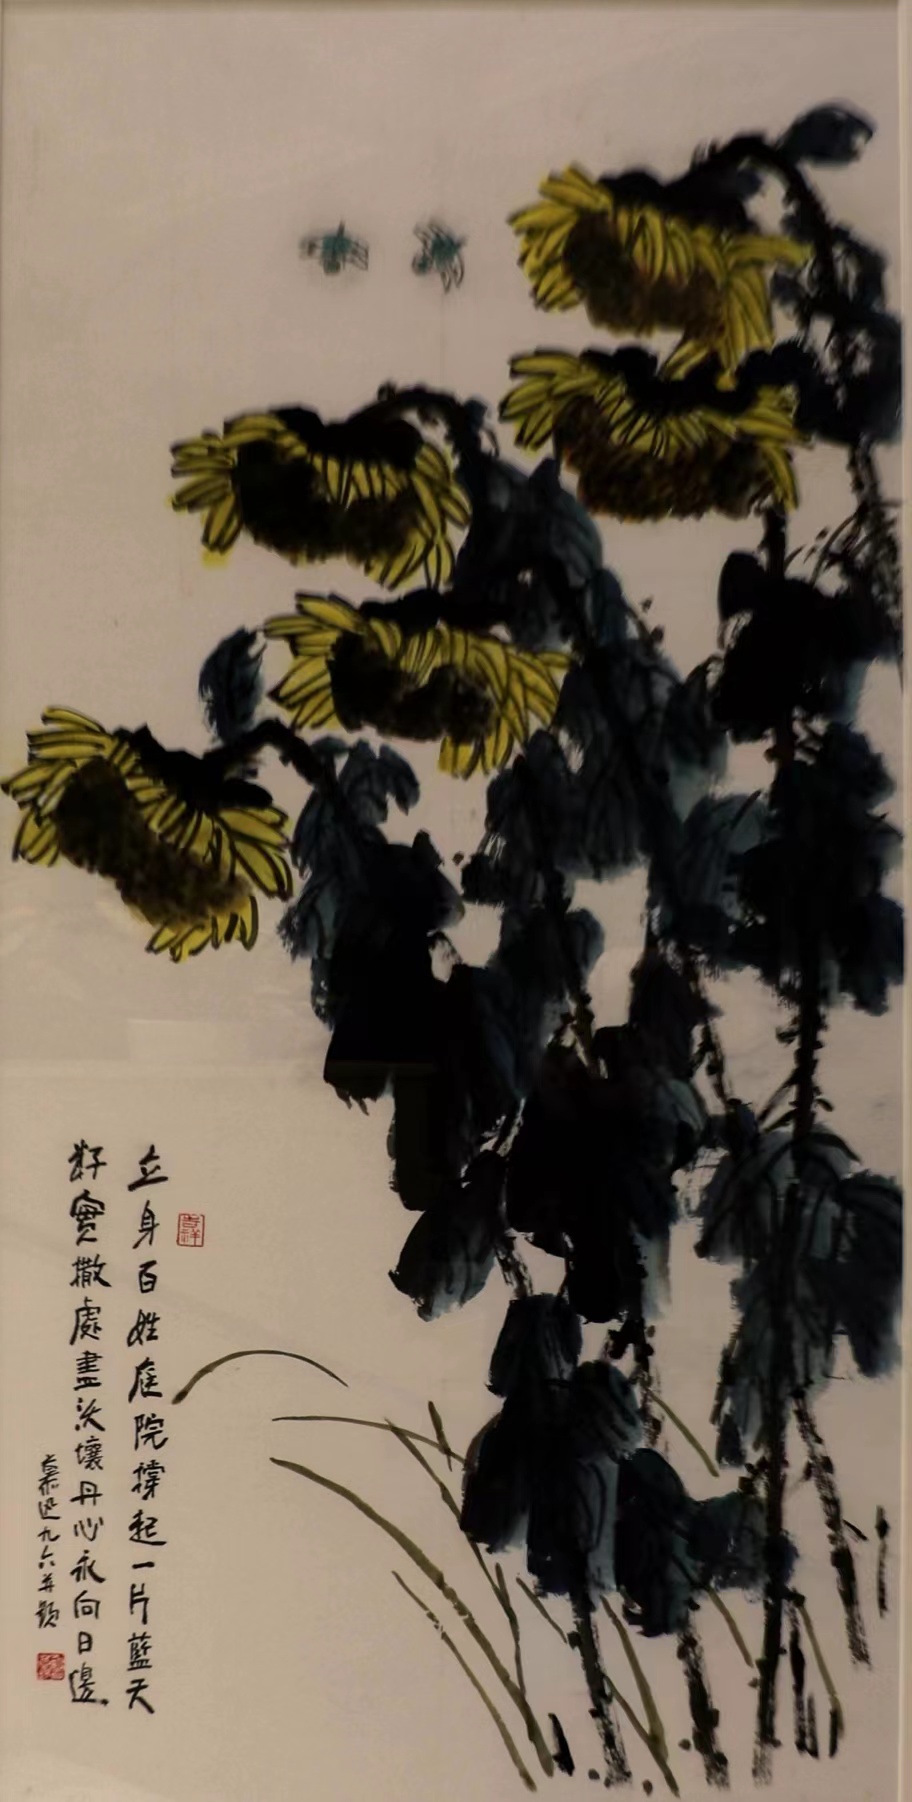 立身百姓庭院撑起一片藍天
籽實撒處盡沃壤丹心永向日邊
九六并题
吉祥